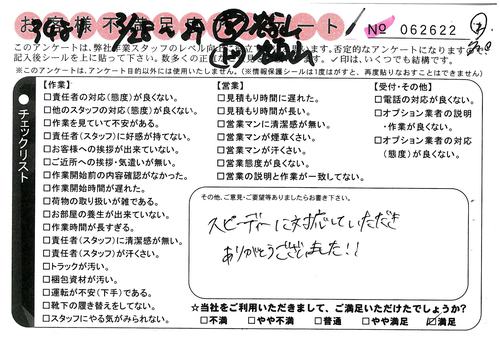 お客様不満足度アンケート
№ 062622
このアンケートは、弊社作業スタッフのレベル向上に
記入後シールを上に貼って下さい。数多くの正
否定的なアンケートになりますが
✓印は、いくつでも結構です。
※このアンケートは、アンケート目的以外には使用いたしません。(※情報保護シールは1度はがすと、再度貼りなおすことはできません)
チェックリスト
【作業】
□責任者の対応(態度)が良くない。
□他のスタッフの対応(態度)が良くない。
□作業を見ていて不安がある。
□責任者(スタッフ)に好感が持てない。
□お客様への挨拶が出来ていない。
□ご近所への挨拶・気遣いが無い。
□作業開始前の内容確認がなかった。
□作業開始時間が遅れた。
□荷物の取り扱いが雑である。
□お部屋の養生が出来ていない。
□作業時間が長すぎる。
□責任者(スタッフ)に清潔感が無い。
□責任者(スタッフ)が汗くさい。
□トラックが汚い。
□梱包資材が汚い。
□運転が不安(下手)である。
□靴下の履き替えをしてない。
□スタッフにやる気がみられない。
【営業】
□見積もり時間に遅れた。
□見積もり時間が長い。
□営業マンに清潔感が無い。
□営業マンが煙草くさい。
□営業マンが汗くさい。
□営業態度が良くない。
□営業の説明と作業が一致してない。
【受付・その他】
□電話の対応が良くない。
□オプション業者の説明
・作業が良くない。
□オプション業者の対応
(態度)が良くない。
その他、ご意見・ご要望等ありましたらお書き下さい。
スピーディーに対応していただき
ありがとうございました!!
☆当社をご利用いただきまして、ご満足いただけたでしょうか?
□不満 □やや不満 □普通 □やや満足 ☑満足